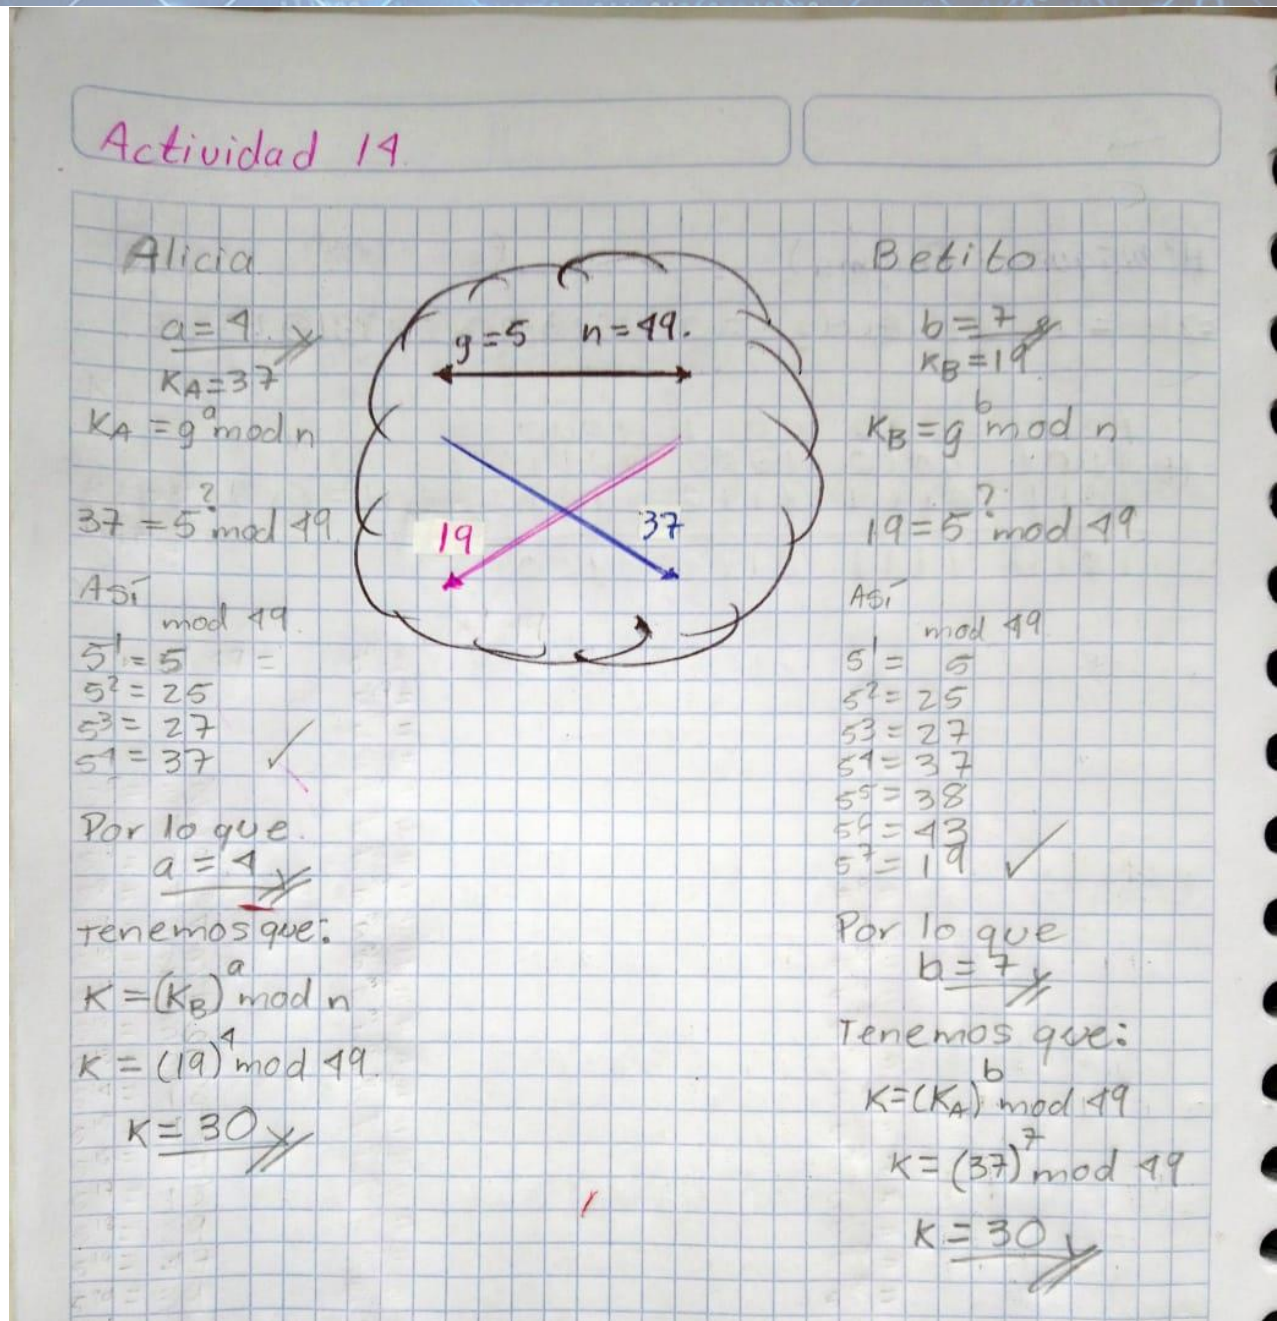 Actividad 14
Alicia
a = 4
KA = 37
KA = g^a mod n
37 = 5^? mod 49
Así
mod 49
5^1 = 5 =
5^2 = 25
5^3 = 27
5^4 = 37 ✓
Por lo que
a = 4
Tenemos que:
K = (KB)^a mod n
K = (19)^4 mod 49.
K = 30
g = 5 n = 49.
19 37
Betito
b = 7
KB = 19
KB = g^b mod n
19 = 5^? mod 49
Así
mod 49
5^1 = 5
5^2 = 25
5^3 = 27
5^4 = 37
5^5 = 38
5^6 = 43
5^7 = 19 ✓
Por lo que
b = 7
Tenemos que:
K = (KA)^b mod 49
K = (37)^7 mod 49
K = 30